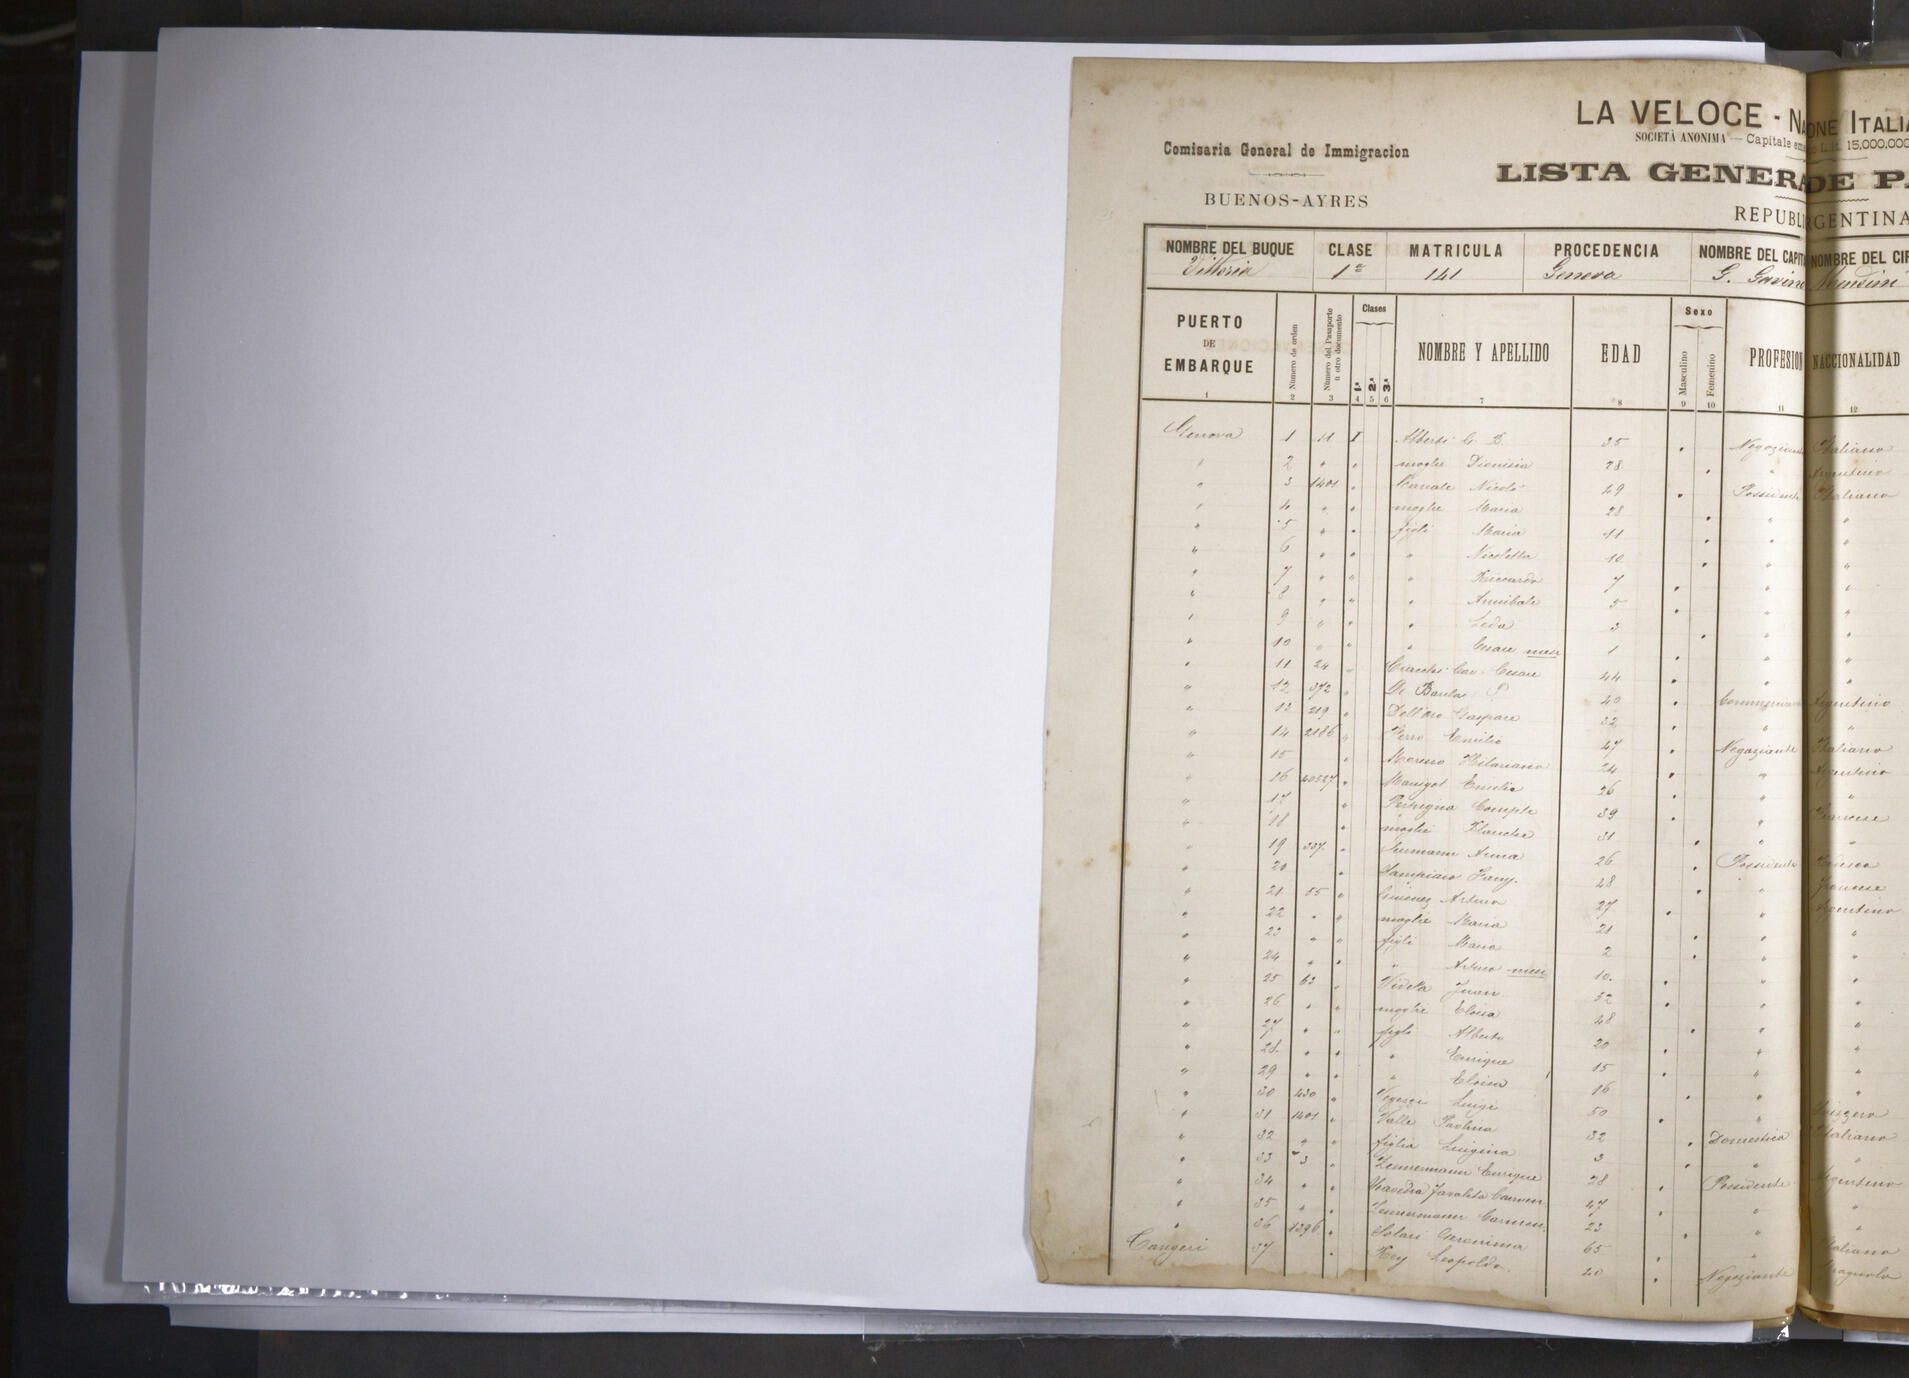 LA VELOCE - NA ONE ITALIA
SOCIETÀ ANONIMA — Capitale em o L.it. 15,000,000
Comisaria General de Immigracion
LISTA GENERA DE PA
BUENOS-AYRES
REPUBLI RGENTINA
NOMBRE DEL BUQUE CLASE MATRICULA PROCEDENCIA NOMBRE DEL CAPIT NOMBRE DEL CIR
Vittoria 1ª 141 Genova G. Gavino
PUERTO DE EMBARQUE Número de orden Número del Pasaporte ú otro documento Clases 1ª 2ª 3ª NOMBRE Y APELLIDO EDAD Sexo Masculino Femenino PROFESION NACCIONALIDAD
1 2 3 4 5 6 7 8 9 10 11 12
Genova 1 11 I Alberti G. B. 35 Negoziante Italiano
" 2 " " moglie Dionisia 28 " Argentino
" 3 1401 " Canale Nicolò 49 " Possidente Italiano
" 4 " " moglie Maria 28 " " "
" 5 " " figli Maria 11 " " "
" 6 " " " Nicoletta 10 " " "
" 7 " " " Riccardo 7 " " "
" 8 " " " Annibale 5 " " "
" 9 " " " Leda 3 " " "
" 10 " " " Cesare mesi 1 " " "
" 11 24 " Cav. Cesare 44 " " "
" 12 372 " De P. 40 " Argentino
" 13 219 " Dell'Oro Gaspare 32 " " "
" 14 2186 " Ferro Emilio 47 " Negoziante Italiano
" 15 " Moreno Hilariano 24 " " Argentino
" 16 40527 " Manigot Emilio 26 " " "
" 17 " 39 " " Francese
" 18 " moglie Blanche 31 " " "
" 19 337 " Anna 26 " Possidente
" 20 " 48 " " Francese
" 21 55 " Gimenez Arturo 27 " " Argentino
" 22 " " moglie Maria 21 " " "
" 23 " " figli Maria 2 " " "
" 24 " " " Arturo mesi 10 " " "
" 25 63 " Videla Juan 52 " " "
" 26 " " moglie Eloisa 48 " " "
" 27 " " figli Alberto 20 " " "
" 28 " " " Enrique 15 " " "
" 29 " " " Eloisa 16 " " "
" 30 430 " Vegezzi Luigi 50 " " Svizzero
" 31 1401 " Valle Paolina 32 " Domestica Italiano
" 32 " " figlia Luigina 3 " " "
" 33 73 " Zennermann Enrique 28 " Possidente Argentino
" 34 " " Carmen 47 " "
" 35 " " Zennermann Carmen 23 " "
" 36 1396 " Solari Geronima 65 " " Italiano
Tangeri 37 " Rey Leopoldo 20 " Negoziante Spagnolo